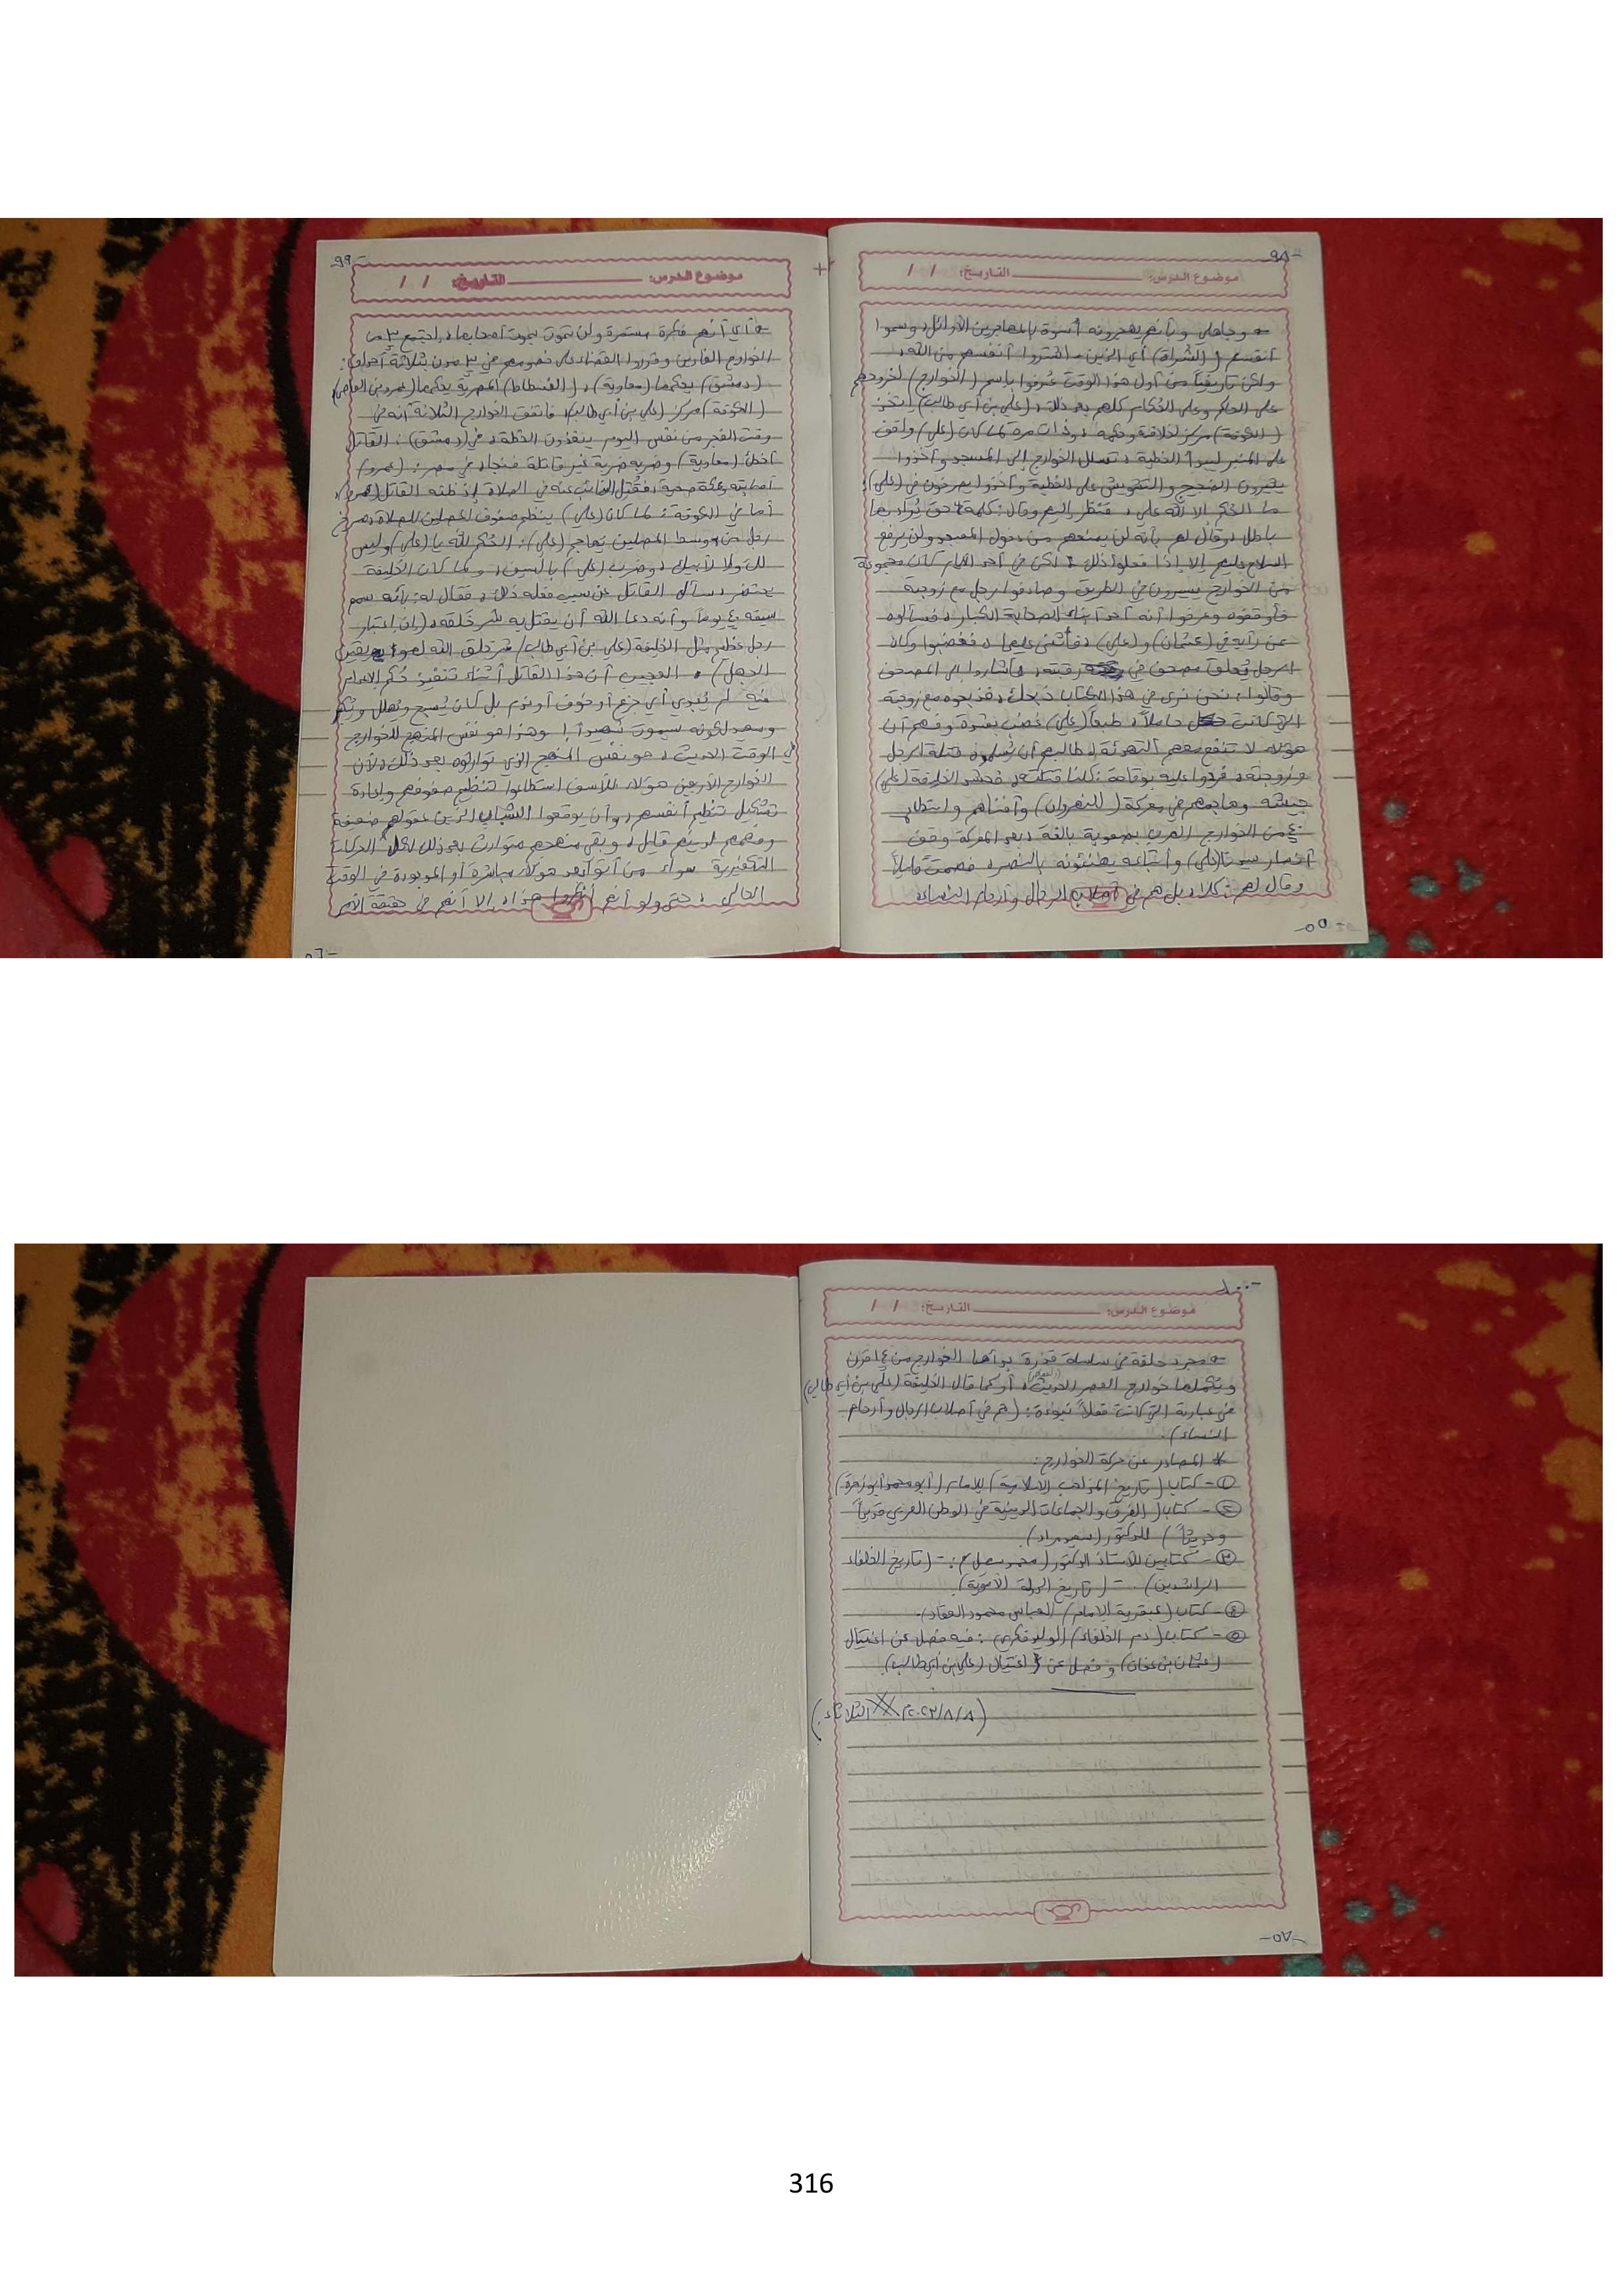 -٩٨
موضوع الدرس: التاريخ: / /
وجاهلي وبأنهم يهجرونه أسوة بالمهاجرين الأوائل، وسموا
أنفسهم (الشُراة) أي الذين اشتروا أنفسهم من الله،
ولكن تاريخياً من أول هذا الوقت عُرفوا باسم (الخوارج) لخروجهم
على الحاكم وعلى الحُكام كلهم بعد ذلك، (علي بن أبي طالب) اتخذ
(الكوفة) مركز لخلافته وحكمه، وذات مرة لما كان (علي) واقف
على المنبر ليبدأ الخطبة، تسلل الخوارج إلى المسجد وأخذوا
يثيرون الضجيج والتشويش على الخطبة وأخذوا يصرخون في (علي):
ما الحُكم إلا لله علي، فنظر إليهم وقال: كلمة حق يُراد بها
باطل، وقال لهم بأنه لن يمنعهم من دخول المسجد ولن يرفع
السلاح عليهم إلا إذا فعلوا ذلك، لكن في أحد الأيام كان مجموعة
من الخوارج يسيرون في الطريق وصادفوا رجل مع زوجته
فأوقفوه وعرفوا أنه أحد أبناء الصحابة الكبار، فسألوه
عن رأيه في (عثمان) و(علي)، فأثنى عليهما، فغضبوا وكان
الرجل يُعلق مصحف في رقبته، فأشاروا إلى المصحف
وقالوا: نحن نرى في هذا الكتاب ذبحك، فذبحوه مع زوجته
التي كانت حاملاً، طبعاً (علي) غضب بشدة وفهم أن
هؤلاء لا تنفع معهم التهدئة، طالبهم أن يُسلموه قتلة الرجل
وزوجته، فردوا عليه بوقاحة: كلنا قتلته، فحشد الخليفة (علي)
جيشه وهاجمهم في معركة (النهروان) وأفناهم واستطاع
٤٠ من الخوارج الهرب بصعوبة بالغة، بعد المعركة وقف
أنصار سيدنا (علي) وأتباعه يهنئونه بالنصر، فصمت قليلاً
وقال لهم: كلا، بل هم في أصلاب الرجال وأرحام النساء
-٥٥-
-٩٩
موضوع الدرس: التاريخ: / /
أي أنهم فكرة مستمرة ولن تموت بموت أصحابها، اجتمع ٣ من
الخوارج الفارين وقرروا القضاء على خصومهم في ٣ مدن بثلاثة أحداث:
(دمشق) يحكمها (معاوية)، (الفسطاط) المصرية يحكمها (عمرو بن العاص)
(الكوفة) مركز (علي بن أبي طالب)، فاتفق الخوارج الثلاثة أنه في
وقت الفجر من نفس اليوم ينفذون الخطة، في (دمشق): القاتل
أخطأ (معاوية) وضربه ضربة غير قاتلة فنجا، في مصر: (عمرو)
أصابته وعكة صحية، فقُتل النائب عنه في الصلاة إذ ظنه القاتل (عمرو)،
أما في الكوفة: لما كان (علي) ينظم صفوف المصلين للصلاة، صرخ
رجل من وسط المصلين يهاجم (علي): الحُكم لله يا (علي) وليس
لك ولا لأصحابك، وضرب (علي) بالسيف، ولما كان الخليفة
يحتضر، سأل القاتل عن سبب فعله ذلك، فقال له: بأنه سمم
سيفه ٤٠ يوماً وأنه دعا الله أن يقتل به شر خلقه، (بان اعتبار
رجل عظيم مثل الخليفة (علي بن أبي طالب) شر خلق الله لهو يقين
الجهل)، العجيب أن هذا القاتل أثناء تنفيذ حُكم الإعدام
فيه لم يُبدي أي جزع أو خوف أو ندم بل كان يُسبح ويُهلل ويُكبر
وسعيد لكونه سيموت شهيداً! وهذا هو نفس المنهج للخوارج
في الوقت الحديث، هو نفس المنهج الذي توارثوه بعد ذلك، لأن
الخوارج الأربعين هؤلاء للأسف استطاعوا تنظيم صفوفهم وإعادة
تشكيل تنظيم أنفسهم، وأن يوقعوا الشباب الذين عقولهم ضعيفة
وفهمهم لدينهم قليل، وبقي منهجهم متوارث بعد ذلك لكل الحركات
التكفيرية سواء من أتوا بعد هؤلاء مباشرة أو الموجودة في الوقت
الحالي، حتى ولو أنهم أنكروا هذا، إلا أنهم في حقيقة الأمر
-١٠٠
موضوع الدرس: التاريخ: / /
مجرد حلقة في سلسلة قذرة بدأها الخوارج من ١٤ قرن
ويُكملها خوارج العصر الحديث، أو كما قال الخليفة (علي بن أبي طالب)
في عبارته التي كانت فعلاً نبوءة: (هم في أصلاب الرجال وأرحام
النساء).
* المصادر عن حركة الخوارج:
①- كتاب (تاريخ المذاهب الإسلامية) للإمام (أبو محمد أبو زهرة)
②- كتاب (الفرق والجماعات الدينية في الوطن العربي قديماً
وحديثاً) للدكتور (سعيد مراد).
③- كتابين للأستاذ الدكتور (محمد سهيل): - (تاريخ الخلفاء
الراشدين) - (تاريخ الدولة الأموية).
④- كتاب (عبقرية الإمام) (لعباس محمود العقاد).
⑤- كتاب (دم الخلفاء) (لوليد فكري): فيه فصل عن اغتيال
(عثمان بن عفان) وفصل عن اغتيال (علي بن أبي طالب).
(٢٠٢٣/٨/٨ الثلاثاء).
-٥٧-
316